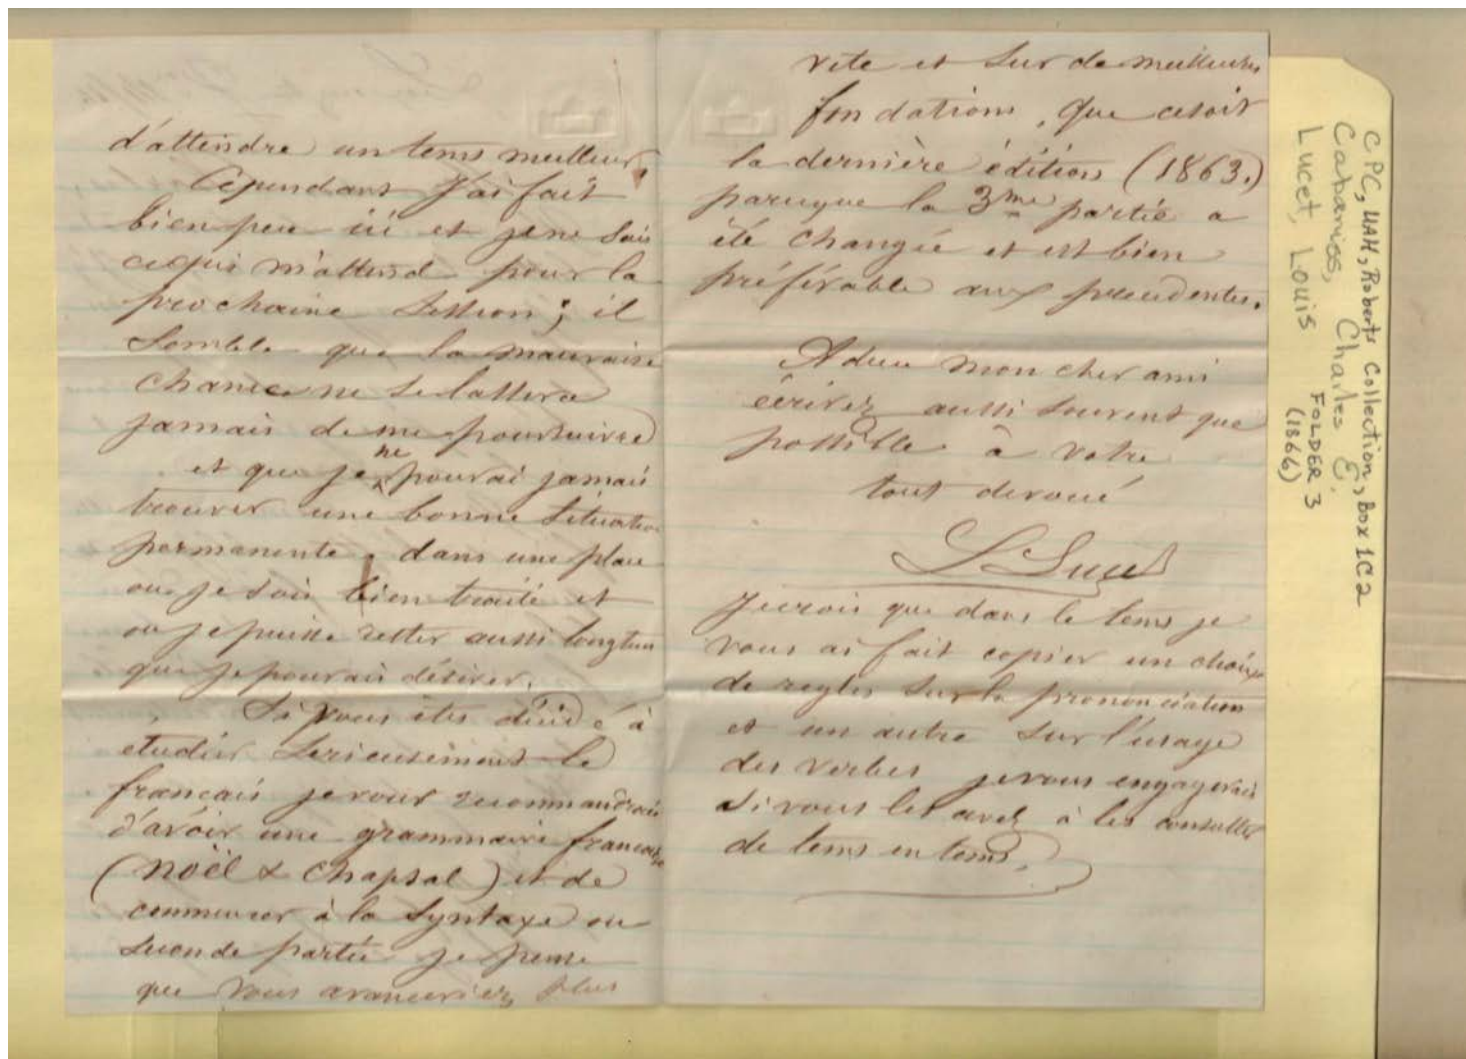 d'attendre un tems meilleur.
Cependant j'ai fait
bien peu ici et je ne sais
ce qui m'attend pour la
prochaine session ; il
semble que la mauvaise
chance ne se lassera
jamais de me poursuivre
et que je ne pourai jamais
trouver une bonne situation
permanente, dans une place
ou je sois bien traité et
ou je puisse rester aussi longtems
que je pourrais désirer.
Si vous êtes décidé à
etudier serieusement le
français je vous recommandrais
d'avoir une grammaire francaise
(Noël & Chapsal) et de
commencer à la syntaxe ou
seconde partie je pense
que vous avanceriez plus
vite et sur de meilleures
fondations, que ce soit
la dernière édition (1863.)
parceque la 3me partie a
été changée et est bien
préférable aux precedentes.
Adieu mon cher ami
écrivez aussi souvent que
possible à votre
tout devoué
L Lucet
Je crois que dans le tems je
vous ai fait copier un choix
de regles sur la prononciation
et un autre sur l'usage
des verbes je vous engagerais
si vous les avez à les consulter
de tems en tems.
CPC, UAH, Roberts Collection, Box 1C2
Cabaniss, Charles E.
Lucet, Louis FOLDER 3
(1866)